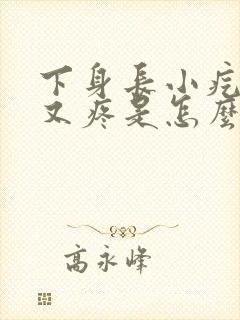 下身長小疙
又疼是怎麼
高永峰